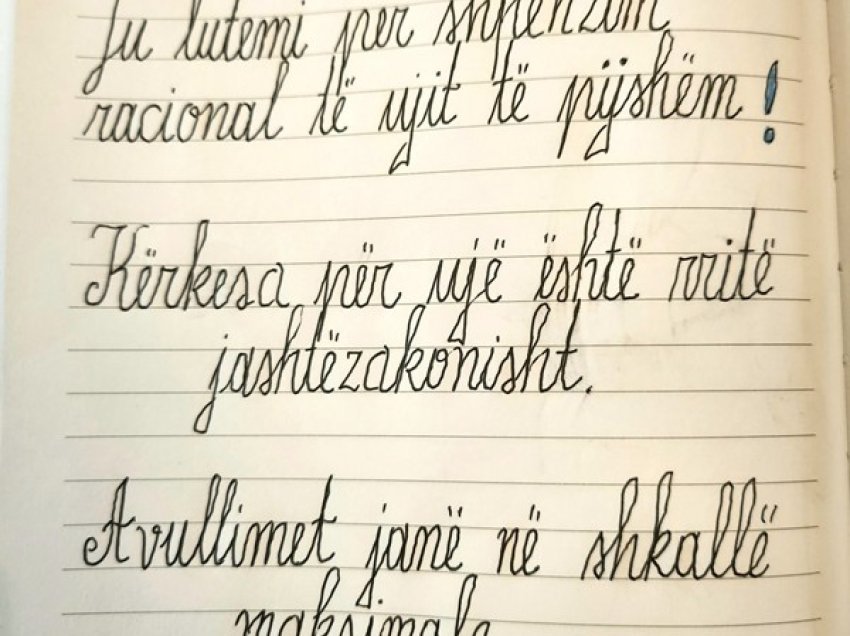 Ju lutemi për shpenzim
racional të ujit të pijshëm!
Kërkesa për ujë është rritë
jashtëzakonisht.
Avullimet janë në shkallë
maksimale